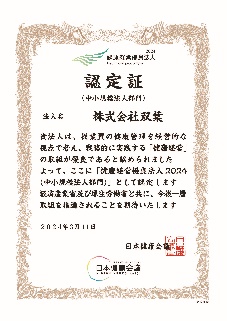 2024
健康経営優良法人
認定証
(中小規模法人部門)
法人名
株式会社双葉
貴法人は、従業員の健康管理を経営的な
視点で考え、戦略的に実践する「健康経営」
の取組が優良であると認められました
よって、ここに「健康経営優良法人2024
(中小規模法人部門)」として認定します
経済産業省及び厚生労働省と共に、今後一層
取組を推進されることを期待いたします
2024年3月11日
日本健康会議
日本健康会議